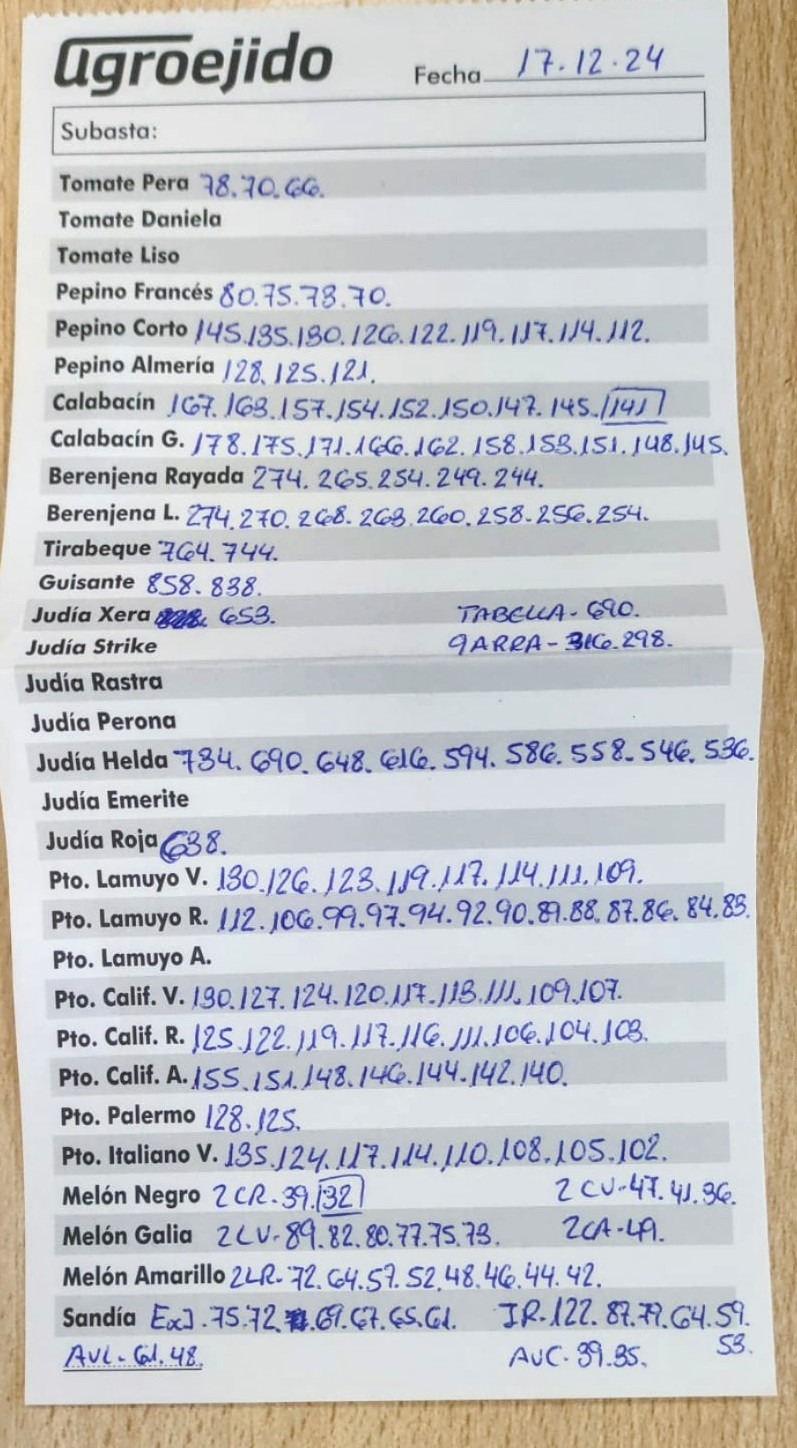 agroejido Fecha 17.12.24
Subasta:
Tomate Pera 78.70.66.
Tomate Daniela
Tomate Liso
Pepino Francés 80.75.73.70.
Pepino Corto 145.135.130.126.122.119.117.114.112.
Pepino Almería 128.125.121.
Calabacín 167.163.157.154.152.150.147.145.141
Calabacín G. 178.175.171.166.162.158.153.151.148.145.
Berenjena Rayada 274.265.254.249.244.
Berenjena L. 274.270.268.263.260.258.256.254.
Tirabeque 764.744.
Guisante 858.838.
Judía Xera 653. TABELLA-690.
Judía Strike GARRA-316.298.
Judía Rastra
Judía Perona
Judía Helda 734.690.648.616.594.586.558.546.536.
Judía Emerite
Judía Roja 638.
Pto. Lamuyo V. 130.126.123.119.117.114.111.109.
Pto. Lamuyo R. 112.106.99.97.94.92.90.89.88.87.86.84.83.
Pto. Lamuyo A.
Pto. Calif. V. 130.127.124.120.117.113.111.109.107.
Pto. Calif. R. 125.122.119.117.116.111.106.104.103.
Pto. Calif. A. 155.151.148.146.144.142.140.
Pto. Palermo 128.125.
Pto. Italiano V. 135.124.117.114.110.108.105.102.
Melón Negro 2CR-39.32 2CV-47.41.36.
Melón Galia 2LV-89.82.80.77.75.73. 2CA-49.
Melón Amarillo 2LR-72.64.57.52.48.46.44.42.
Sandía ExJ.75.72.69.67.65.61. IR-122.87.79.64.59.
53.
AVL-61.48. AUC-39.35.